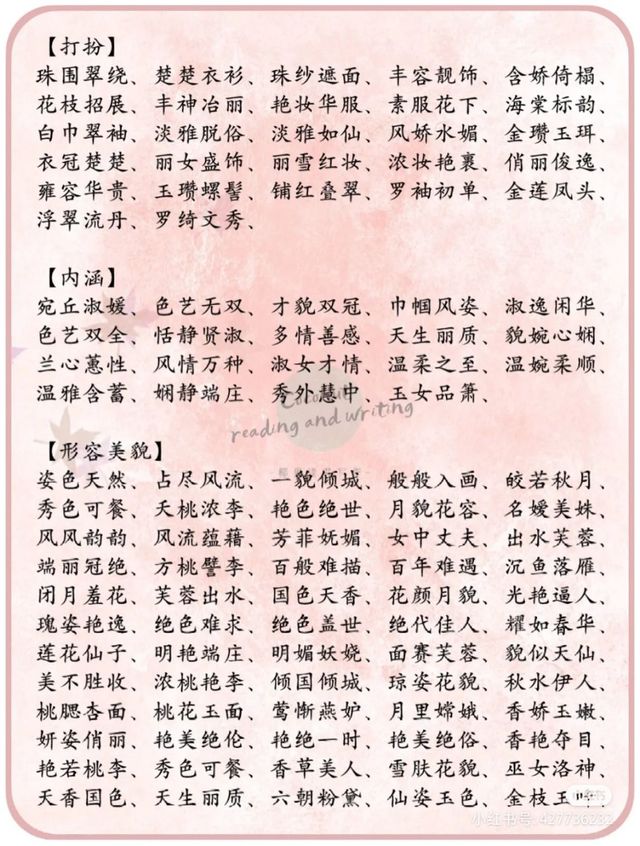 【打扮】
珠围翠绕、楚楚衣衫、珠纱遮面、丰容靓饰、含娇倚榻、
花枝招展、丰神冶丽、艳妆华服、素服花下、海棠标韵、
白巾翠袖、淡雅脱俗、淡雅如仙、风娇水媚、金瓒玉珥、
衣冠楚楚、丽女盛饰、丽雪红妆、浓妆艳裹、俏丽俊逸、
雍容华贵、玉瓒螺髻、铺红叠翠、罗袖初单、金莲凤头、
浮翠流丹、罗绮文秀、
【内涵】
宛丘淑媛、色艺无双、才貌双冠、巾帼风姿、淑逸闲华、
色艺双全、恬静贤淑、多情善感、天生丽质、貌婉心娴、
兰心蕙性、风情万种、淑女才情、温柔之至、温婉柔顺、
温雅含蓄、娴静端庄、秀外慧中、玉女品箫、
reading and writing
【形容美貌】
姿色天然、占尽风流、一貌倾城、般般入画、皎若秋月、
秀色可餐、夭桃浓李、艳色绝世、月貌花容、名媛美姝、
风风韵韵、风流蕴藉、芳菲妩媚、女中丈夫、出水芙蓉、
端丽冠绝、方桃譬李、百般难描、百年难遇、沉鱼落雁、
闭月羞花、芙蓉出水、国色天香、花颜月貌、光艳逼人、
瑰姿艳逸、绝色难求、绝色盖世、绝代佳人、耀如春华、
莲花仙子、明艳端庄、明媚妖娆、面赛芙蓉、貌似天仙、
美不胜收、浓桃艳李、倾国倾城、琼姿花貌、秋水伊人、
桃腮杏面、桃花玉面、莺惭燕妒、月里嫦娥、香娇玉嫩、
妍姿俏丽、艳美绝伦、艳绝一时、艳美绝俗、香艳夺目、
艳若桃李、秀色可餐、香草美人、雪肤花貌、巫女洛神、
天香国色、天生丽质、六朝粉黛、仙姿玉色、金枝玉叶、
小红书号:427736232